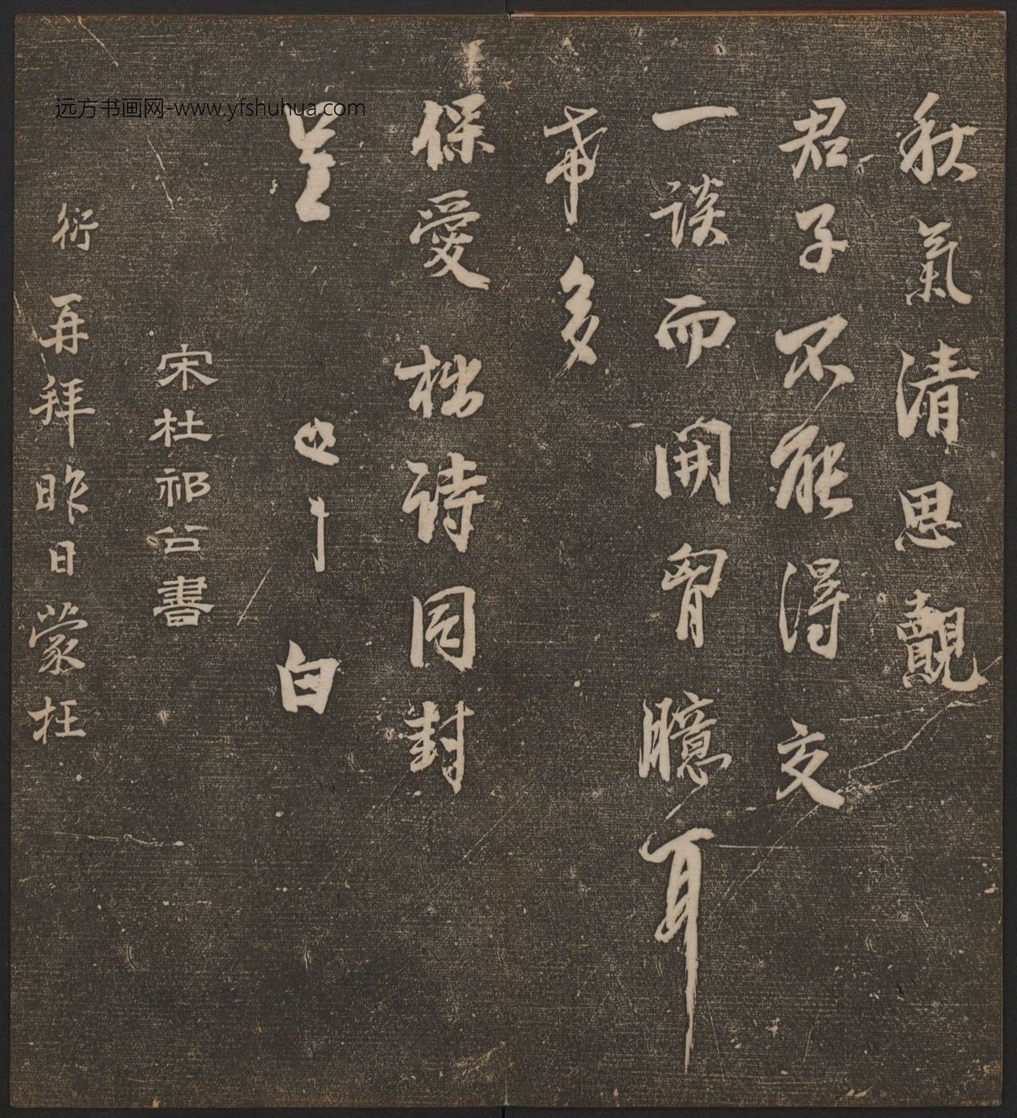 秋氣清思覿
君子不能得交
一談而開胷臆耳
希多
保愛拙詩同封
呈
白
宋杜祁公書
衍再拜昨日蒙枉
远方书画网-www.yfshuhua.com